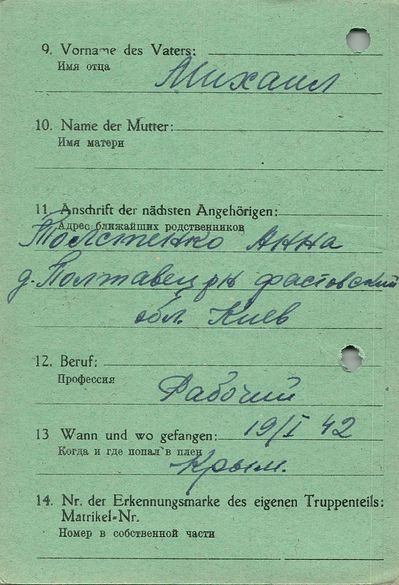 9. Vorname des Vaters:
Имя отца
Михаил
10. Name der Mutter:
Имя матери
11. Anschrift der nächsten Angehörigen:
Адрес ближайших родственников
Толстенко Анна
д. Полтавец рн фастовский
обл. Киев
12. Beruf:
Профессия
Рабочий
13 Wann und wo gefangen: 19/I 42
Когда и где попал в плен
Крым.
14. Nr. der Erkennungsmarke des eigenen Truppenteils:
Matrikel-Nr.
Номер в собственной части